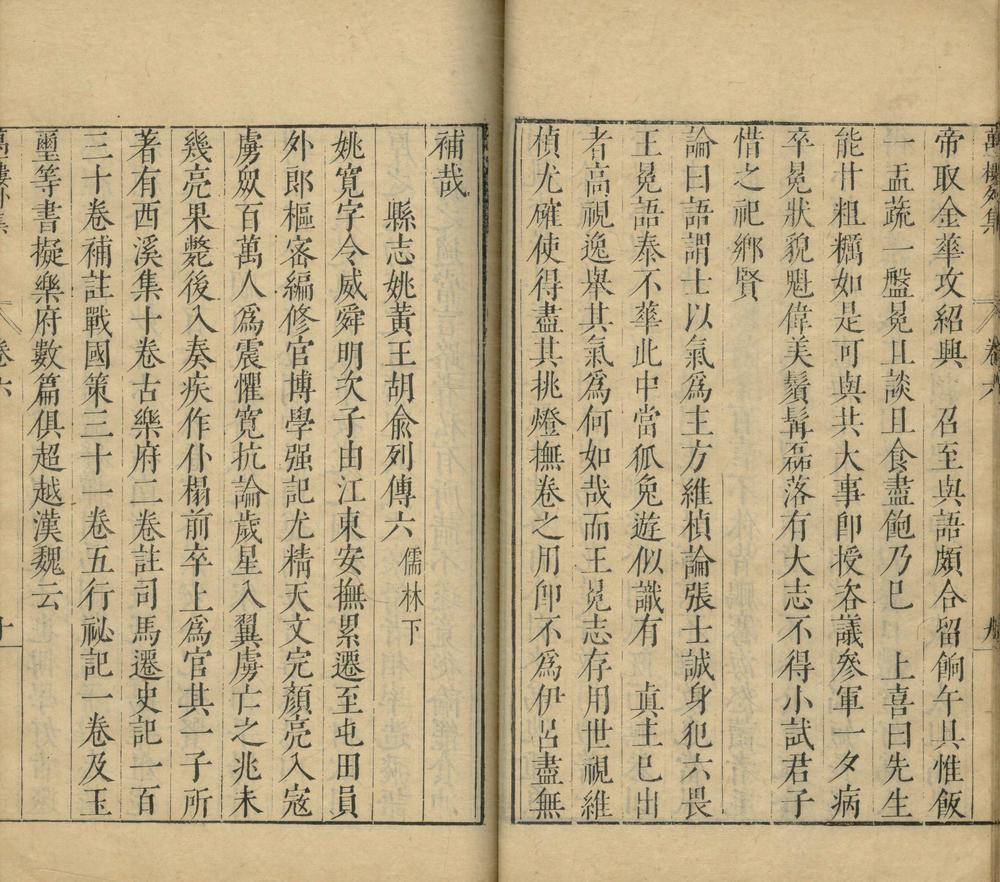 帝取金華攻紹興　召至與語頗合留餉午具惟飯
一盂蔬一盤冕且談且食盡飽乃已　上喜曰先生
能甘粗糲如是可與共大事卽授咨議參軍一夕病
卒冕狀貌魁偉美鬚髯磊落有大志不得小試君子
惜之祀鄉賢
論曰語謂士以氣爲主方維楨論張士誠身犯六畏
王冕語泰不華此中當狐兔遊似識有　真主已出
者高視逸舉其氣爲何如哉而王冕志存用世視維
楨尤確使得盡其挑燈撫卷之用卽不爲伊呂盡無
補哉
縣志姚黃王胡俞列傳六　儒林下
姚寬字令威舜明次子由江東安撫累遷至屯田員
外郎樞密編修官博學强記尤精天文完顏亮入寇
虜㪇百萬人爲震懼寬抗論歲星入翼虜亡之兆未
幾亮果斃後入奏疾作仆榻前卒上爲官其一子所
著有西溪集十卷古樂府二卷註司馬遷史記一百
三十卷補註戰國策三十一卷五行祕記一卷及玉
璽等書擬樂府數篇俱超越漢魏云
卷六
十